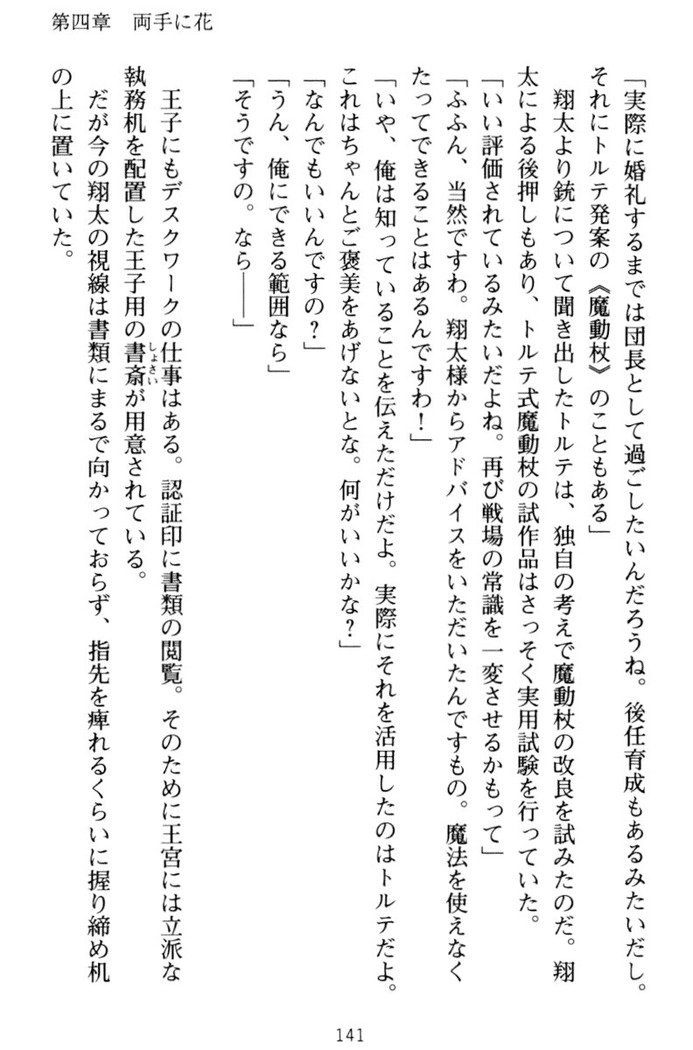 第四章　両手に花
「実際に婚礼するまでは団長として過ごしたいんだろうね。後任育成もあるみたいだし。
それにトルテ発案の《魔動杖》のこともある」
　翔太より銃について聞き出したトルテは、独自の考えで魔動杖の改良を試みたのだ。翔
太による後押しもあり、トルテ式魔動杖の試作品はさっそく実用試験を行っていた。
「いい評価されているみたいだよね。再び戦場の常識を一変させるかもって」
「ふふん、当然ですわ。翔太様からアドバイスをいただいたんですもの。魔法を使えなく
たってできることはあるんですわ！」
「いや、俺は知っていることを伝えただけだよ。実際にそれを活用したのはトルテだよ。
これはちゃんとご褒美をあげないとな。何がいいかな？」
「なんでもいいんですの？」
「うん、俺にできる範囲なら」
「そうですの。なら――」
　王子にもデスクワークの仕事はある。認証印に書類の閲覧。そのために王宮には立派な
執務机を配置した王子用の書斎が用意されている。
しょさい
　だが今の翔太の視線は書類にまるで向かっておらず、指先を痺れるくらいに握り締め机
の上に置いていた。
141